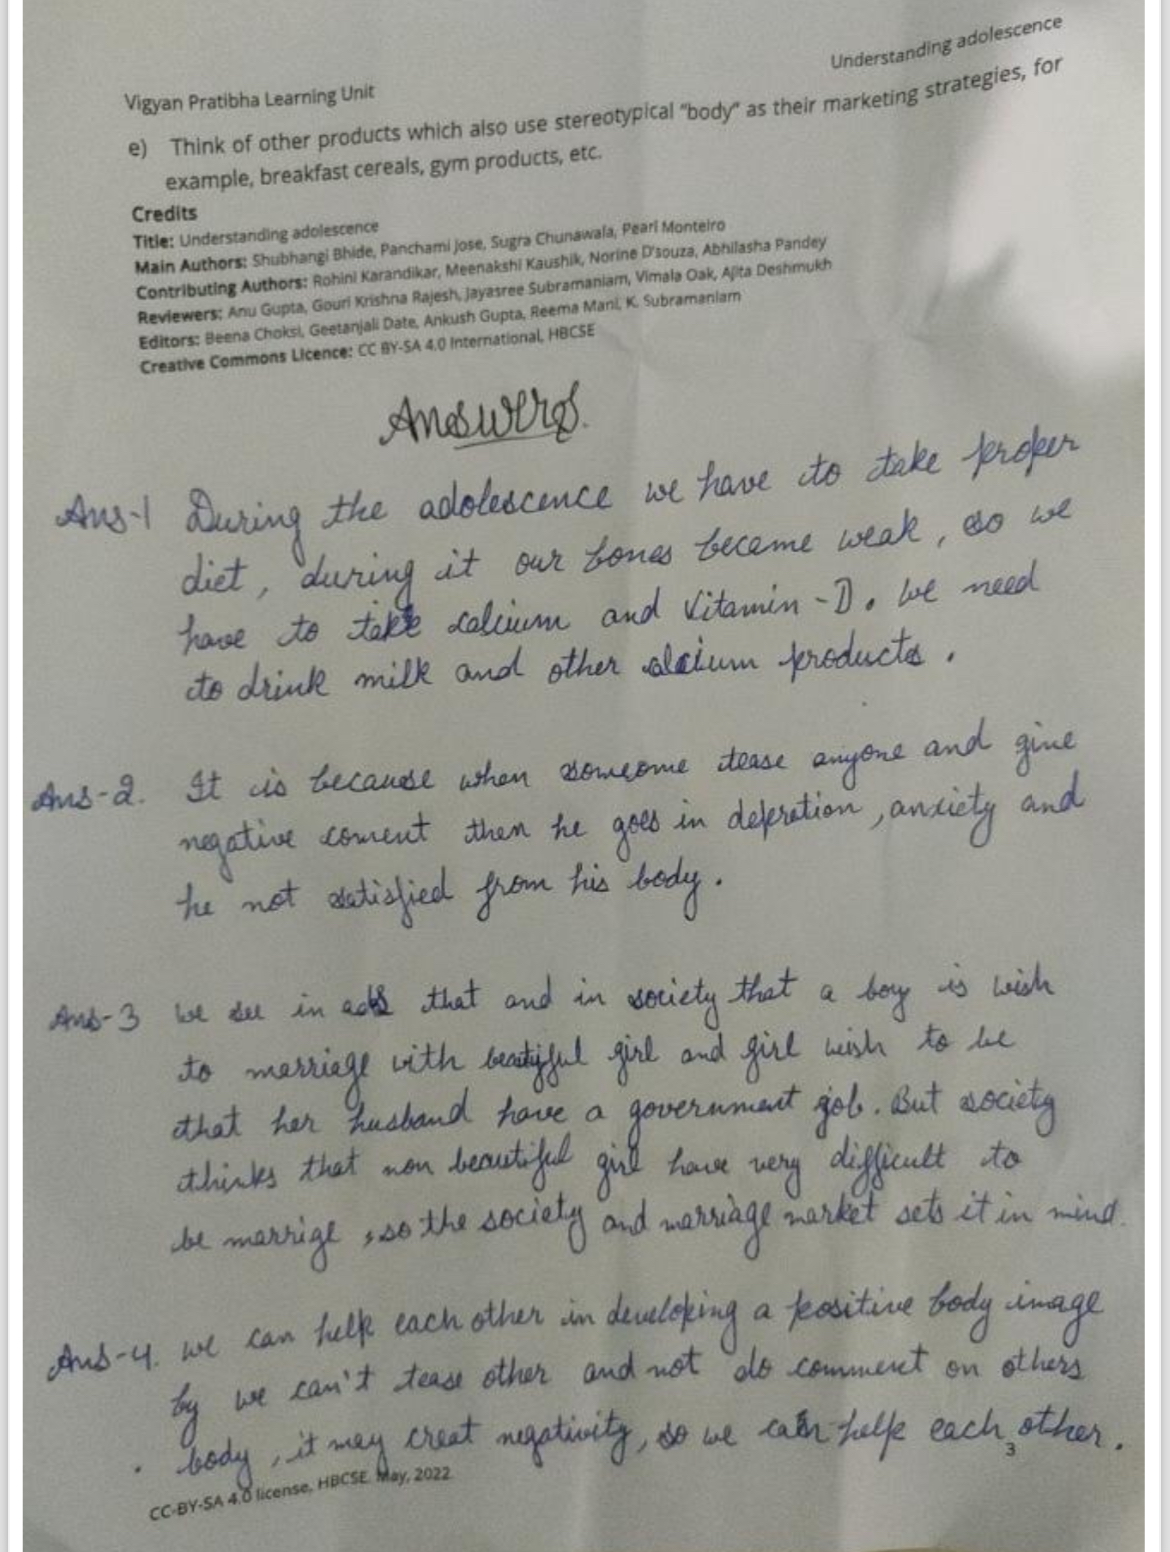 Understanding adolescence
Vigyan Pratibha Learning Unit
e) Think of other products which also use stereotypical "body" as their marketing strategies, for
example, breakfast cereals, gym products, etc.
Credits
Title: Understanding adolescence
Main Authors: Shubhangi Bhide, Panchami Jose, Sugra Chunawala, Pearl Monteiro
Contributing Authors: Rohini Karandikar, Meenakshi Kaushik, Norine D'souza, Abhilasha Pandey
Reviewers: Anu Gupta, Gouri Krishna Rajesh, Jayasree Subramaniam, Vimala Oak, Ajita Deshmukh
Editors: Beena Choksi, Geetanjali Date, Ankush Gupta, Reema Mani, K. Subramaniam
Creative Commons Licence: CC BY-SA 4.0 International, HBCSE
Answers.
Ans-1 During the adolescence we have to take proper
diet, during it our bones become weak, so we
have to take calcium and Vitamin-D. We need
to drink milk and other alcium products.
Ans-2. It is because when someome tease anyone and give
negative coment then he goes in depretion, anxiety and
he not satisfied from his body.
Ans-3 We see in ads that and in society that a boy is wish
to marriage with beautyful girl and girl wish to be
that her husband have a government job. But society
thinks that non beautiful girl have very difficult to
be marrige, so the society and marriage market sets it in mind.
Ans-4. We can help each other in developing a positive body image
by we can't tease other and not do comment on others
body, it may creat negativity, so we can help each other.
3
CC-BY-SA 4.0 license, HBCSE May, 2022